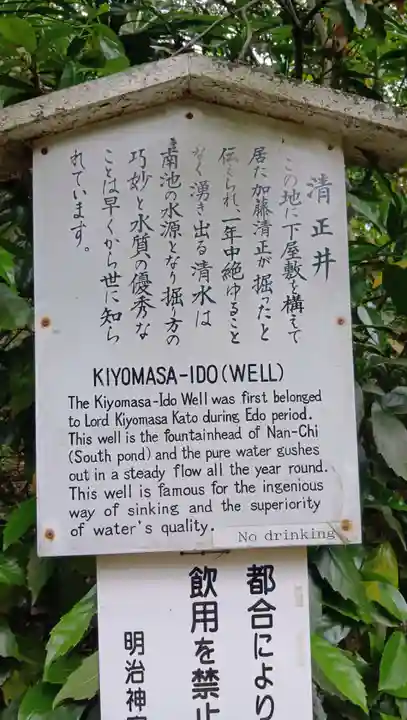 清正井
この地に下屋敷を構えて
居た加藤清正が掘ったと
伝えられ、一年中絶ゆること
なく湧き出る清水は
南池の水源となり掘り方の
巧妙と水質の優秀な
ことは早くから世に知ら
れています。
KIYOMASA-IDO(WELL)
The Kiyomasa-Ido Well was first belonged
to Lord Kiyomasa Kato during Edo period.
This well is the fountainhead of Nan-Chi
(South pond) and the pure water gushes
out in a steady flow all the year round.
This well is famous for the ingenious
way of sinking and the superiority
of water's quality.
No drinking
都合により
飲用を禁止
明治神宮